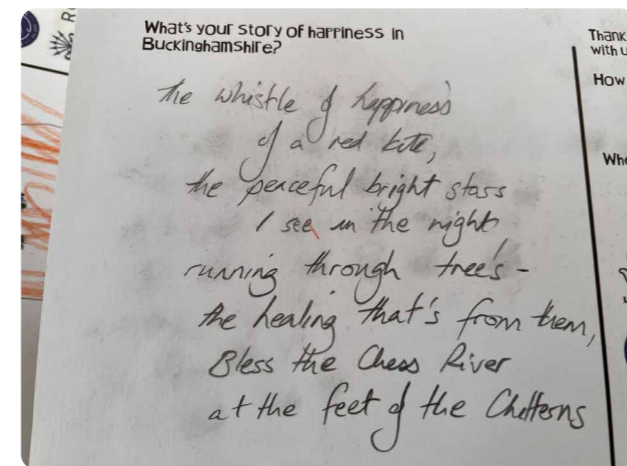 What's your story of happiness in
Buckinghamshire?
the whistle of happiness
of a red kite,
the peaceful bright stars
I see in the night,
running through tree's -
the healing that's from them,
Bless the Chess River
at the feet of the Chilterns
Thank
with u
How
Whe